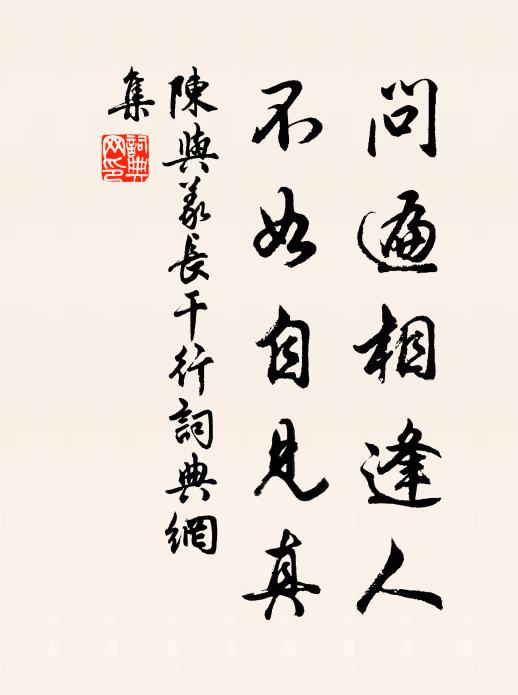 問遍相逢人
不如自見真
陳與義長干行詞典網
集
詞典
网印